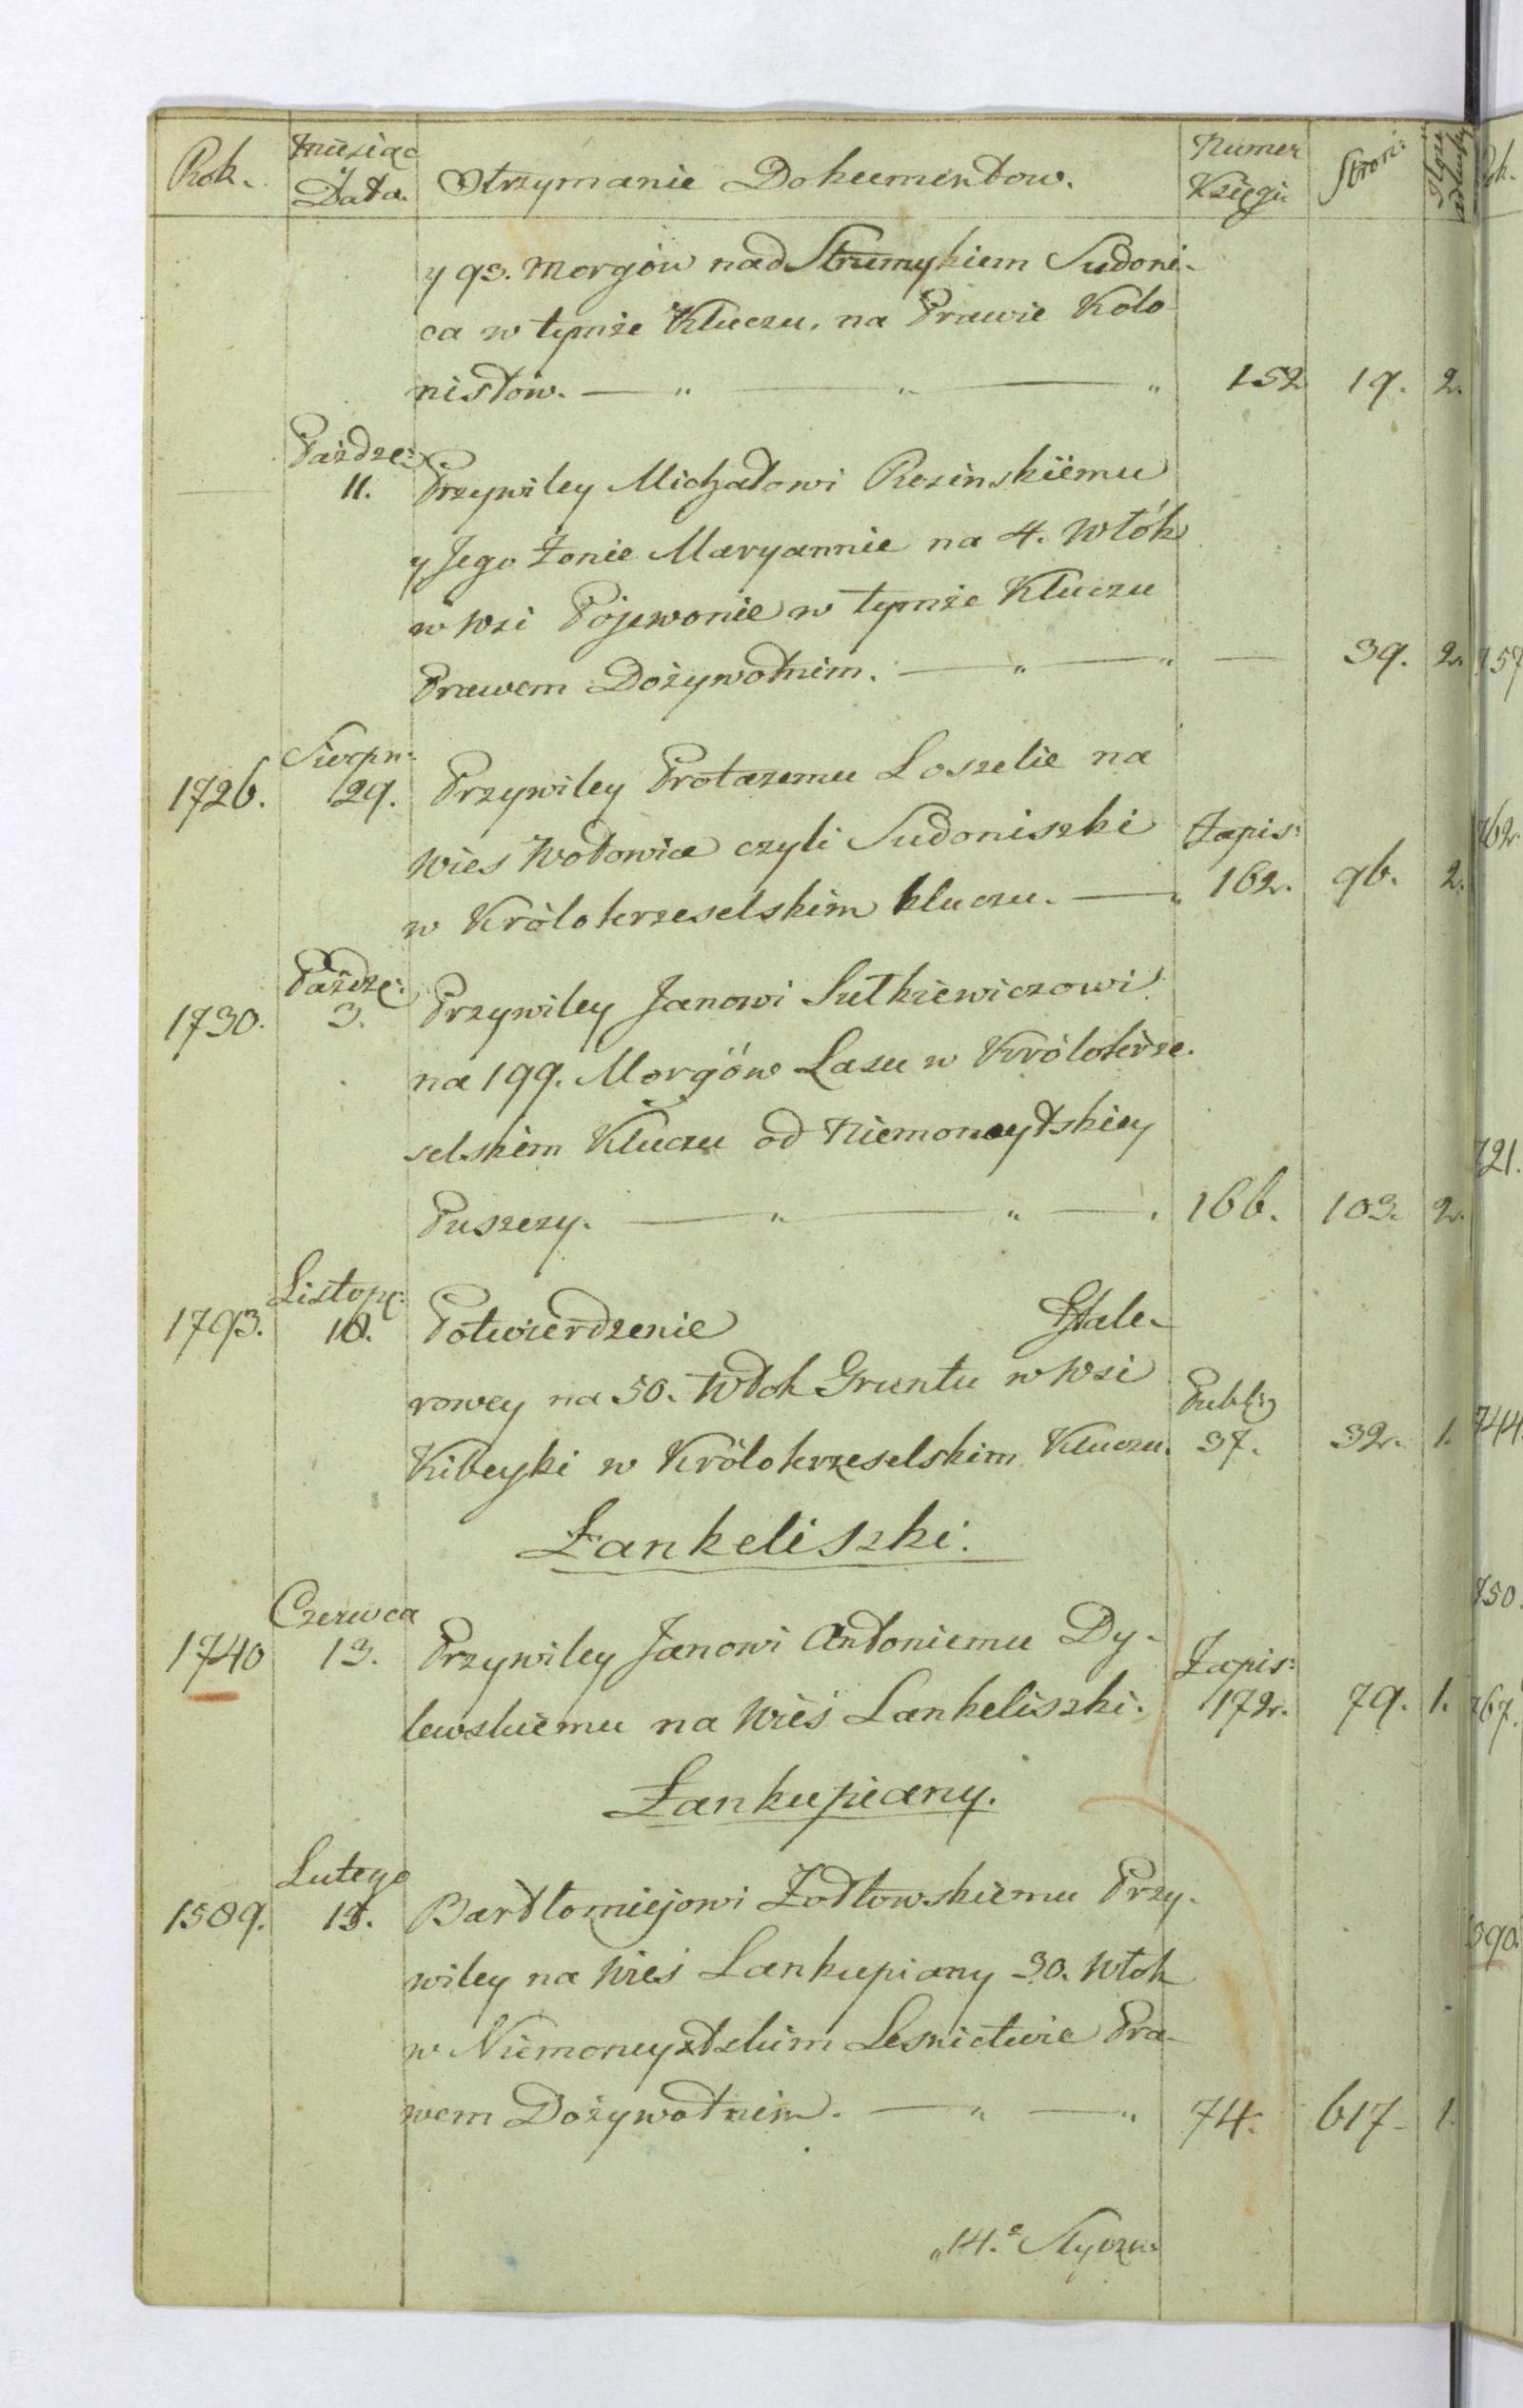 Rok. Miesiąc y Data. Otrzymanie Dokumentow. Numer Księgi Stron: Ilość
y 93. Morgów nad Strumykiem Sudoni-
ca w tymże Kluczu, na Prawie Kolo
nistów. — " — " — " 152 19. 2.
Paźdze:
11. Przywiley Michałowi Rosinskiemu
y Jego Żonie Maryannie na 4. Włók
w Wsi Pojewonie w tymże Kluczu
Prawem Dożywotnim. — " — " — 39. 2.
Sierpn:
1726. 29. Przywiley Protazemu Loszelie na
Wies Wołowice czyli Sudoniszki Zapis:
w Królokrzeselskim kluczu. — " 162. 96. 2.
Paźdze:
1730. 3. Przywiley Janowi Sutkiewiczowi
na 199. Morgów Lasu w Królokrze-
selskim Kluczu od Niemoneytskiey
Puszczy. — " — " — . 166. 103. 2.
Listop:
1793. 18. Potwierdzenie Hale-
rowey na 50. Włok Gruntu w Wsi Publi:
Kibeyki w Królokrzeselskim Kluczu. 37. 32. 1.
Łankeliszki.
Czerwca
1740 13. Przywiley Janowi Antoniemu Dy- Zapis:
lewskiemu na Wieś Lankeliszki. 172. 79. 1.
Łankupiany.
Lutego
1589. Bartłomiejowi Żodłowskiemu Przy-
wiley na Wieś Lankupiany 30. Włok
w Niemoneytskim Lesnictwie Pra-
wem Dożywotnim. — " — " 74. 617. 1.
"14.° Styczn.